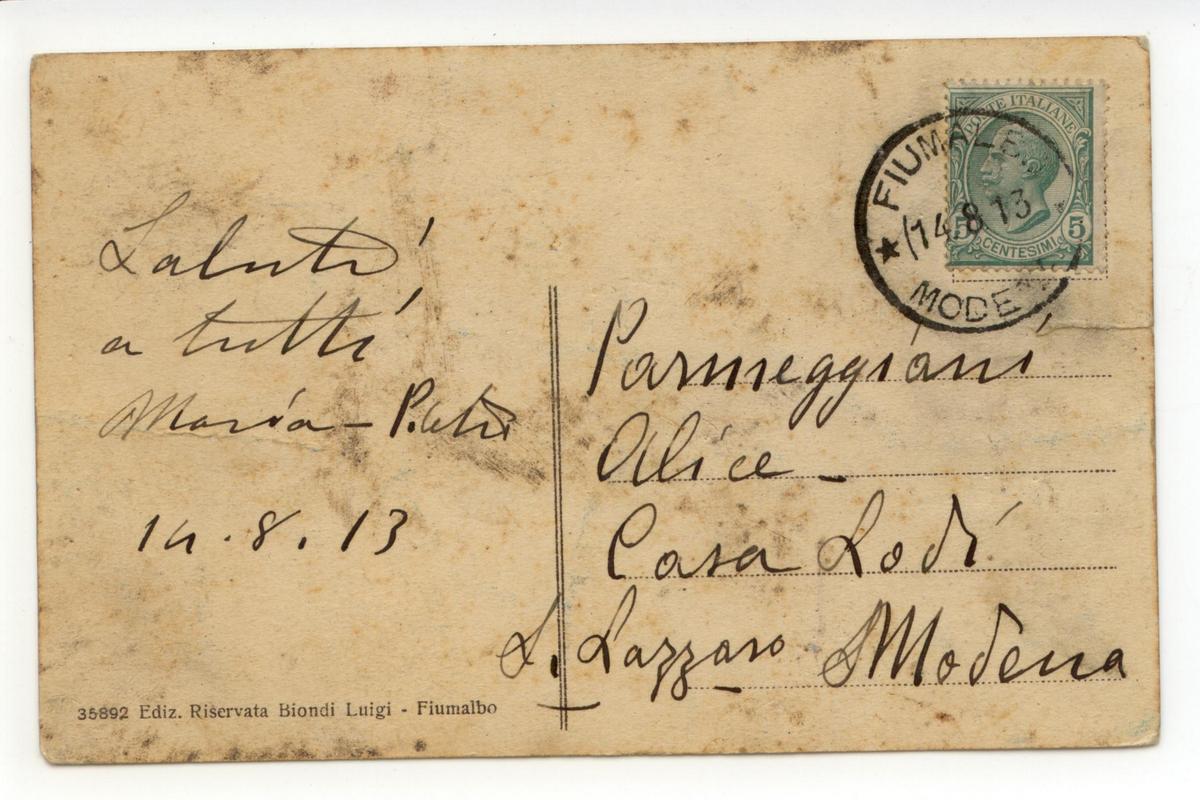 Saluti
a tutti
Maria -
14.8.13
35892 Ediz. Riservata Biondi Luigi - Fiumalbo
POSTE ITALIANE
5 5
CENTESIMI
14.8 13
Parmeggiani
Alice -
Casa Lodi
S. Lazzaro Modena